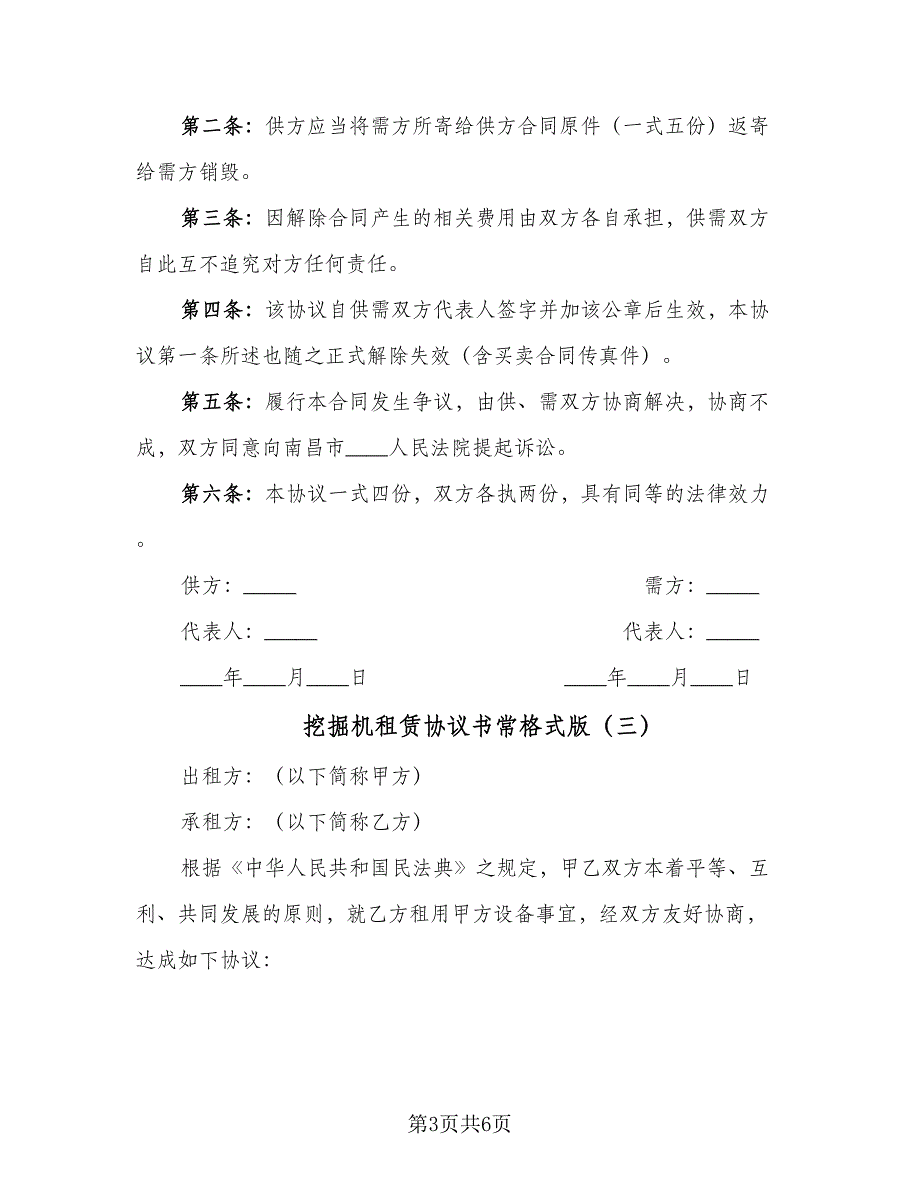 第二条：供方应当将需方所寄给供方合同原件（一式五份）返寄
给需方销毁。
第三条：因解除合同产生的相关费用由双方各自承担，供需双方
自此互不追究对方任何责任。
第四条：该协议自供需双方代表人签字并加该公章后生效，本协
议第一条所述也随之正式解除失效（含买卖合同传真件）。
第五条：履行本合同发生争议，由供、需双方协商解决，协商不
成，双方同意向南昌市____人民法院提起诉讼。
第六条：本协议一式四份，双方各执两份，具有同等的法律效力
。
供方：_____ 需方：_____
代表人：_____ 代表人：_____
____年____月____日 ____年____月____日
挖掘机租赁协议书常格式版（三）
出租方：（以下简称甲方）
承租方：（以下简称乙方）
根据《中华人民共和国民法典》之规定，甲乙双方本着平等、互
利、共同发展的原则，就乙方租用甲方设备事宜，经双方友好协商，
达成如下协议：
第3页共6页